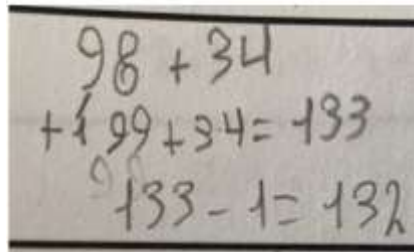 98 + 34
+1 99 + 34 = 133
133 - 1 = 132